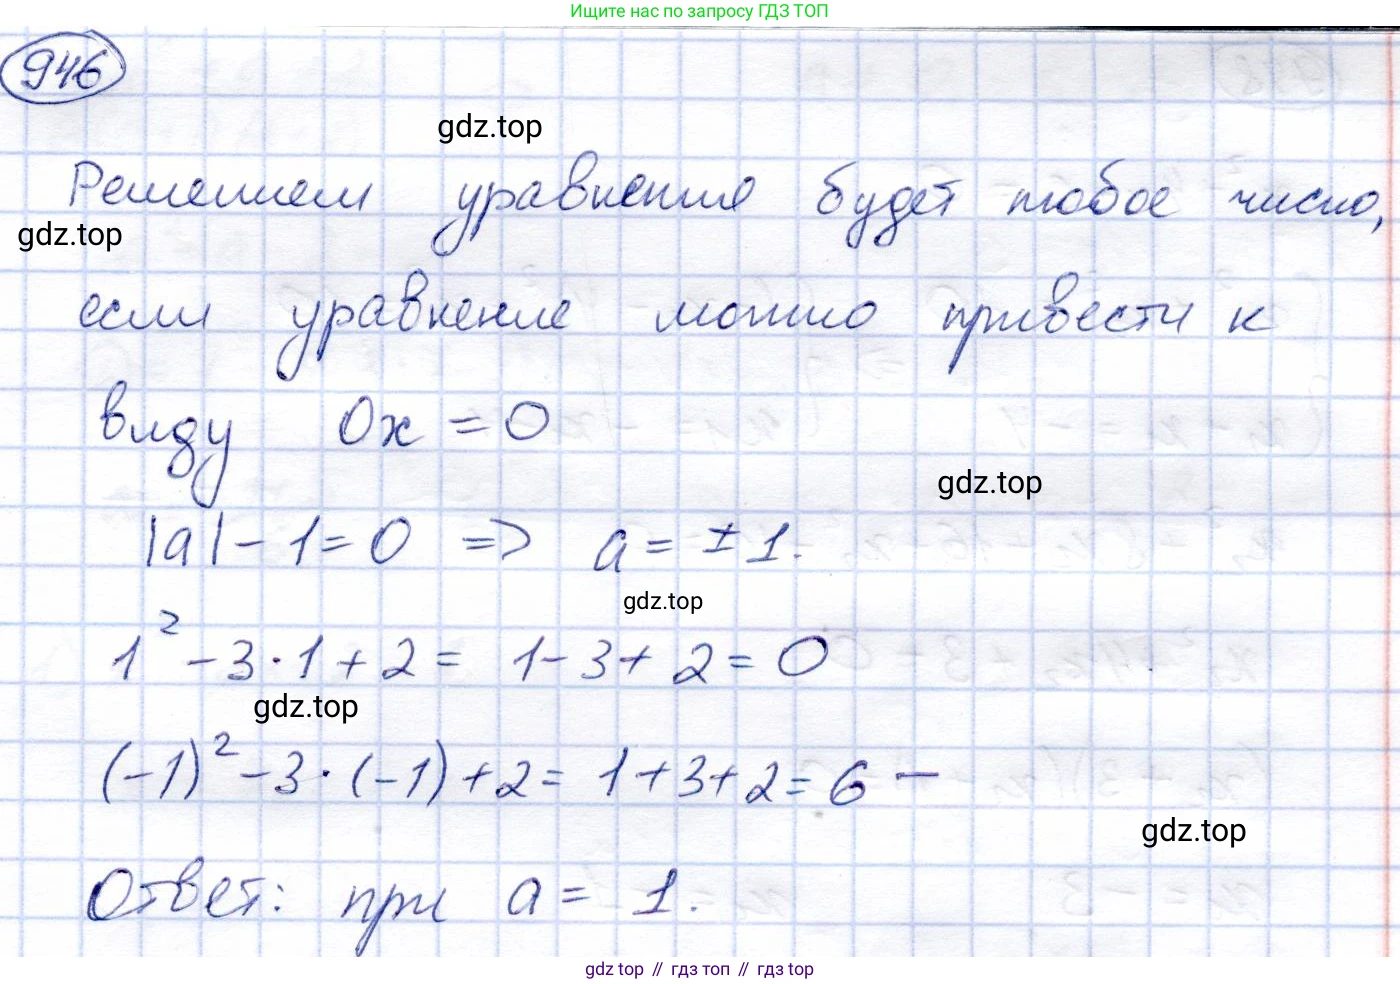 Ищите нас по запросу ГДЗ ТОП
946
gdz.top
Решением уравнения будет любое число,
gdz.top
если уравнение можно привести к
виду 0x = 0
gdz.top
|a| - 1 = 0 => a = ±1.
gdz.top
1² - 3·1 + 2 = 1 - 3 + 2 = 0
gdz.top
(-1)² - 3·(-1) + 2 = 1 + 3 + 2 = 6 -
gdz.top
Ответ: при a = 1.
gdz top // гдз топ // гдз top